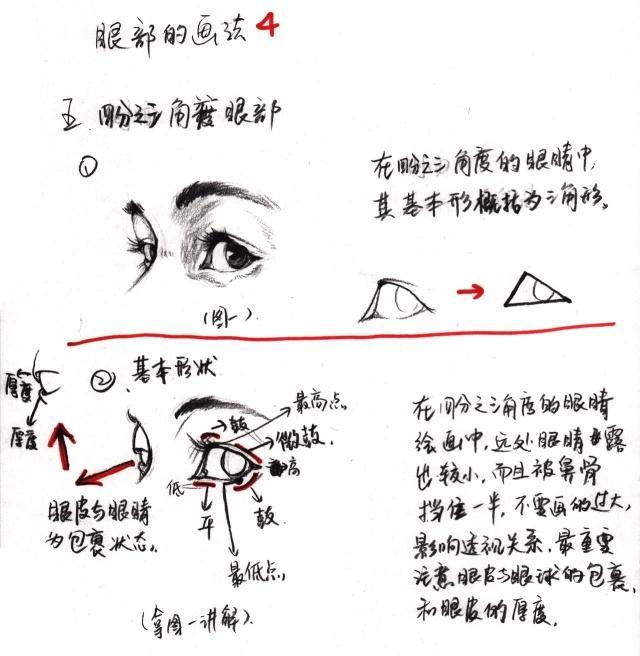 眼部的画法4
五.四分之三角度眼部
①
在四分之三角度的眼睛中,
其基本形概括为三角形。
(图一).
② 基本形状
厚度
厚度
眼皮与眼睛
为包裹状态.
鼓
最高点.
微鼓.
高
低
平
鼓
最低点.
(拿图一讲解).
在四分之三角度的眼睛
绘画中,远处眼睛露
出较小,而且被鼻骨
挡住一半,不要画的过大,
影响透视关系.最重要
注意眼皮与眼球的包裹,
和眼皮的厚度.